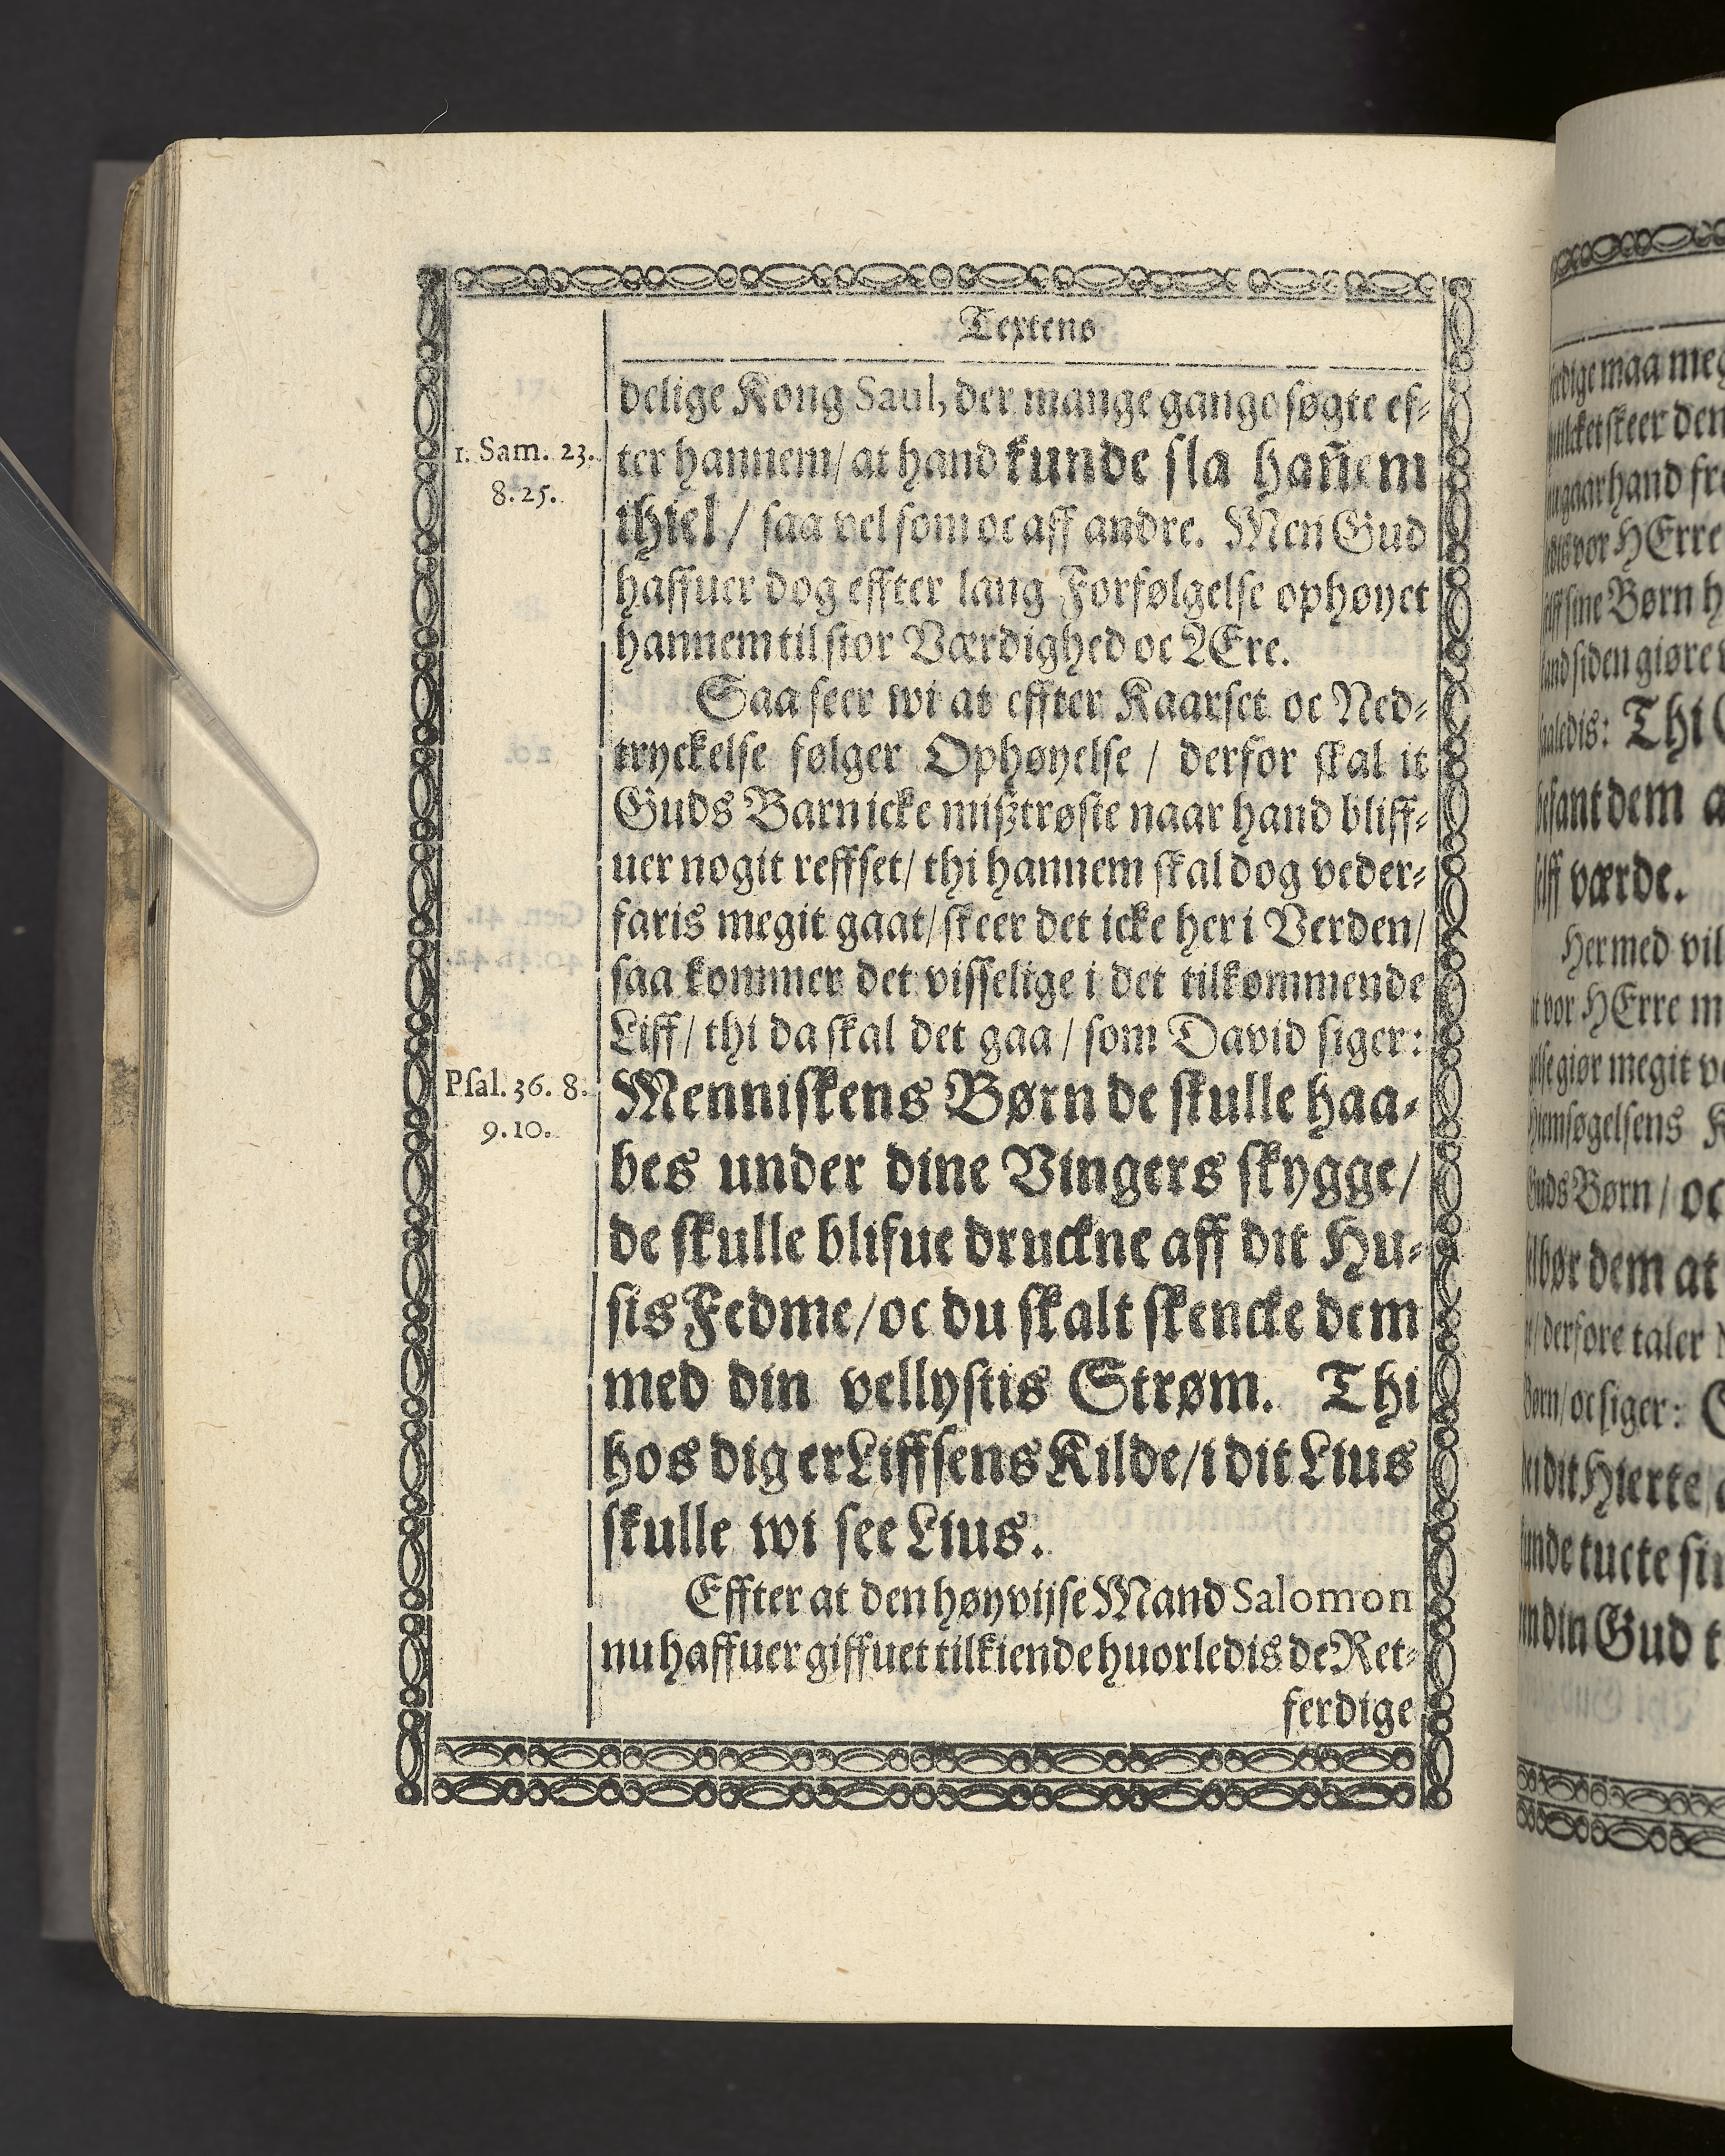 Textens
delige Kong Saul, der mange gange søgte ef-
1. Sam. 23.
8. 25.
ter hannem/ at hand kunde sla hañem
ihiel/ saa vel som oc aff andre. Men Gud
haffuer dog effter lang Forfølgelse ophøyet
hannem til stor Værdighed oc ÆEre.
Saa seer wi at effter Kaarset oc Ned-
tryckelse følger Ophøyelse/ derfor skal it
Guds Barn icke mißtrøste naar hand bliff-
uer nogit reffset/ thi hannem skal dog veder-
faris megit gaat/ skeer det icke her i Verden/
saa kommer det visselige i det tilkommende
Liff/ thi da skal det gaa/ som David siger:
Psal. 36. 8.
9. 10.
Menniskens Børn de skulle haa-
bes under dine Vingers skygge/
de skulle blifue druckne aff dit Hu-
sis Fedme/ oc du skalt skencke dem
med din vellystis Strøm. Thi
hos dig er Liffsens Kilde/ i dit Lius
skulle wi see Lius.
Effter at den høyvijse Mand Salomon
nu haffuer giffuet tilkiende huorledis de Ret-
ferdige
maa meg
skeer den
hand fre
vor HErre
sine Børn h
siden giøre
Thi
dem a
værde.
Hermed vil
vor HErre m
giør megit
Guds Børn/ oc
bør dem at
derfore taler
oc siger:
dit Hierte
tucte
din Gud t